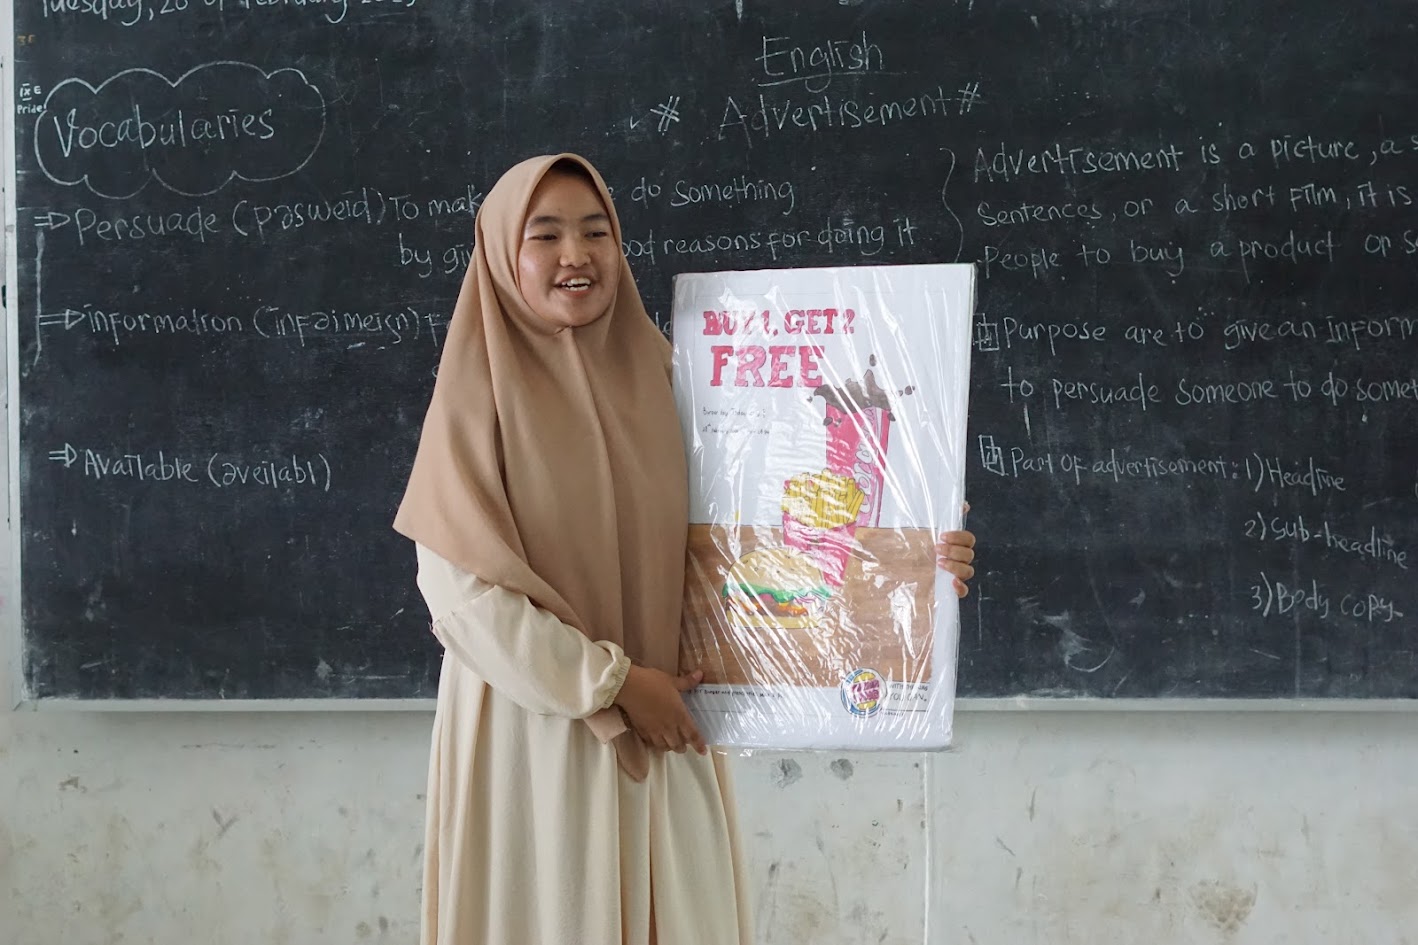 Tuesday, 28 of February 2023
IX E
Pride
Vocabularies
English
# Advertisement #
⇒ Persuade (pəsweid) To mak do something
by gi ood reasons for doing it
⇒ information (infəimeiʃn)
⇒ Available (əveiləbl)
Advertisement is a picture, a s
Sentences, or a short Film, it is
People to buy a product or s
Purpose are to give an inform
to persuade someone to do somet
Part of advertisement: 1) Headline
2) Sub-headline
3) Body copy
BUY 1, GET 2
FREE